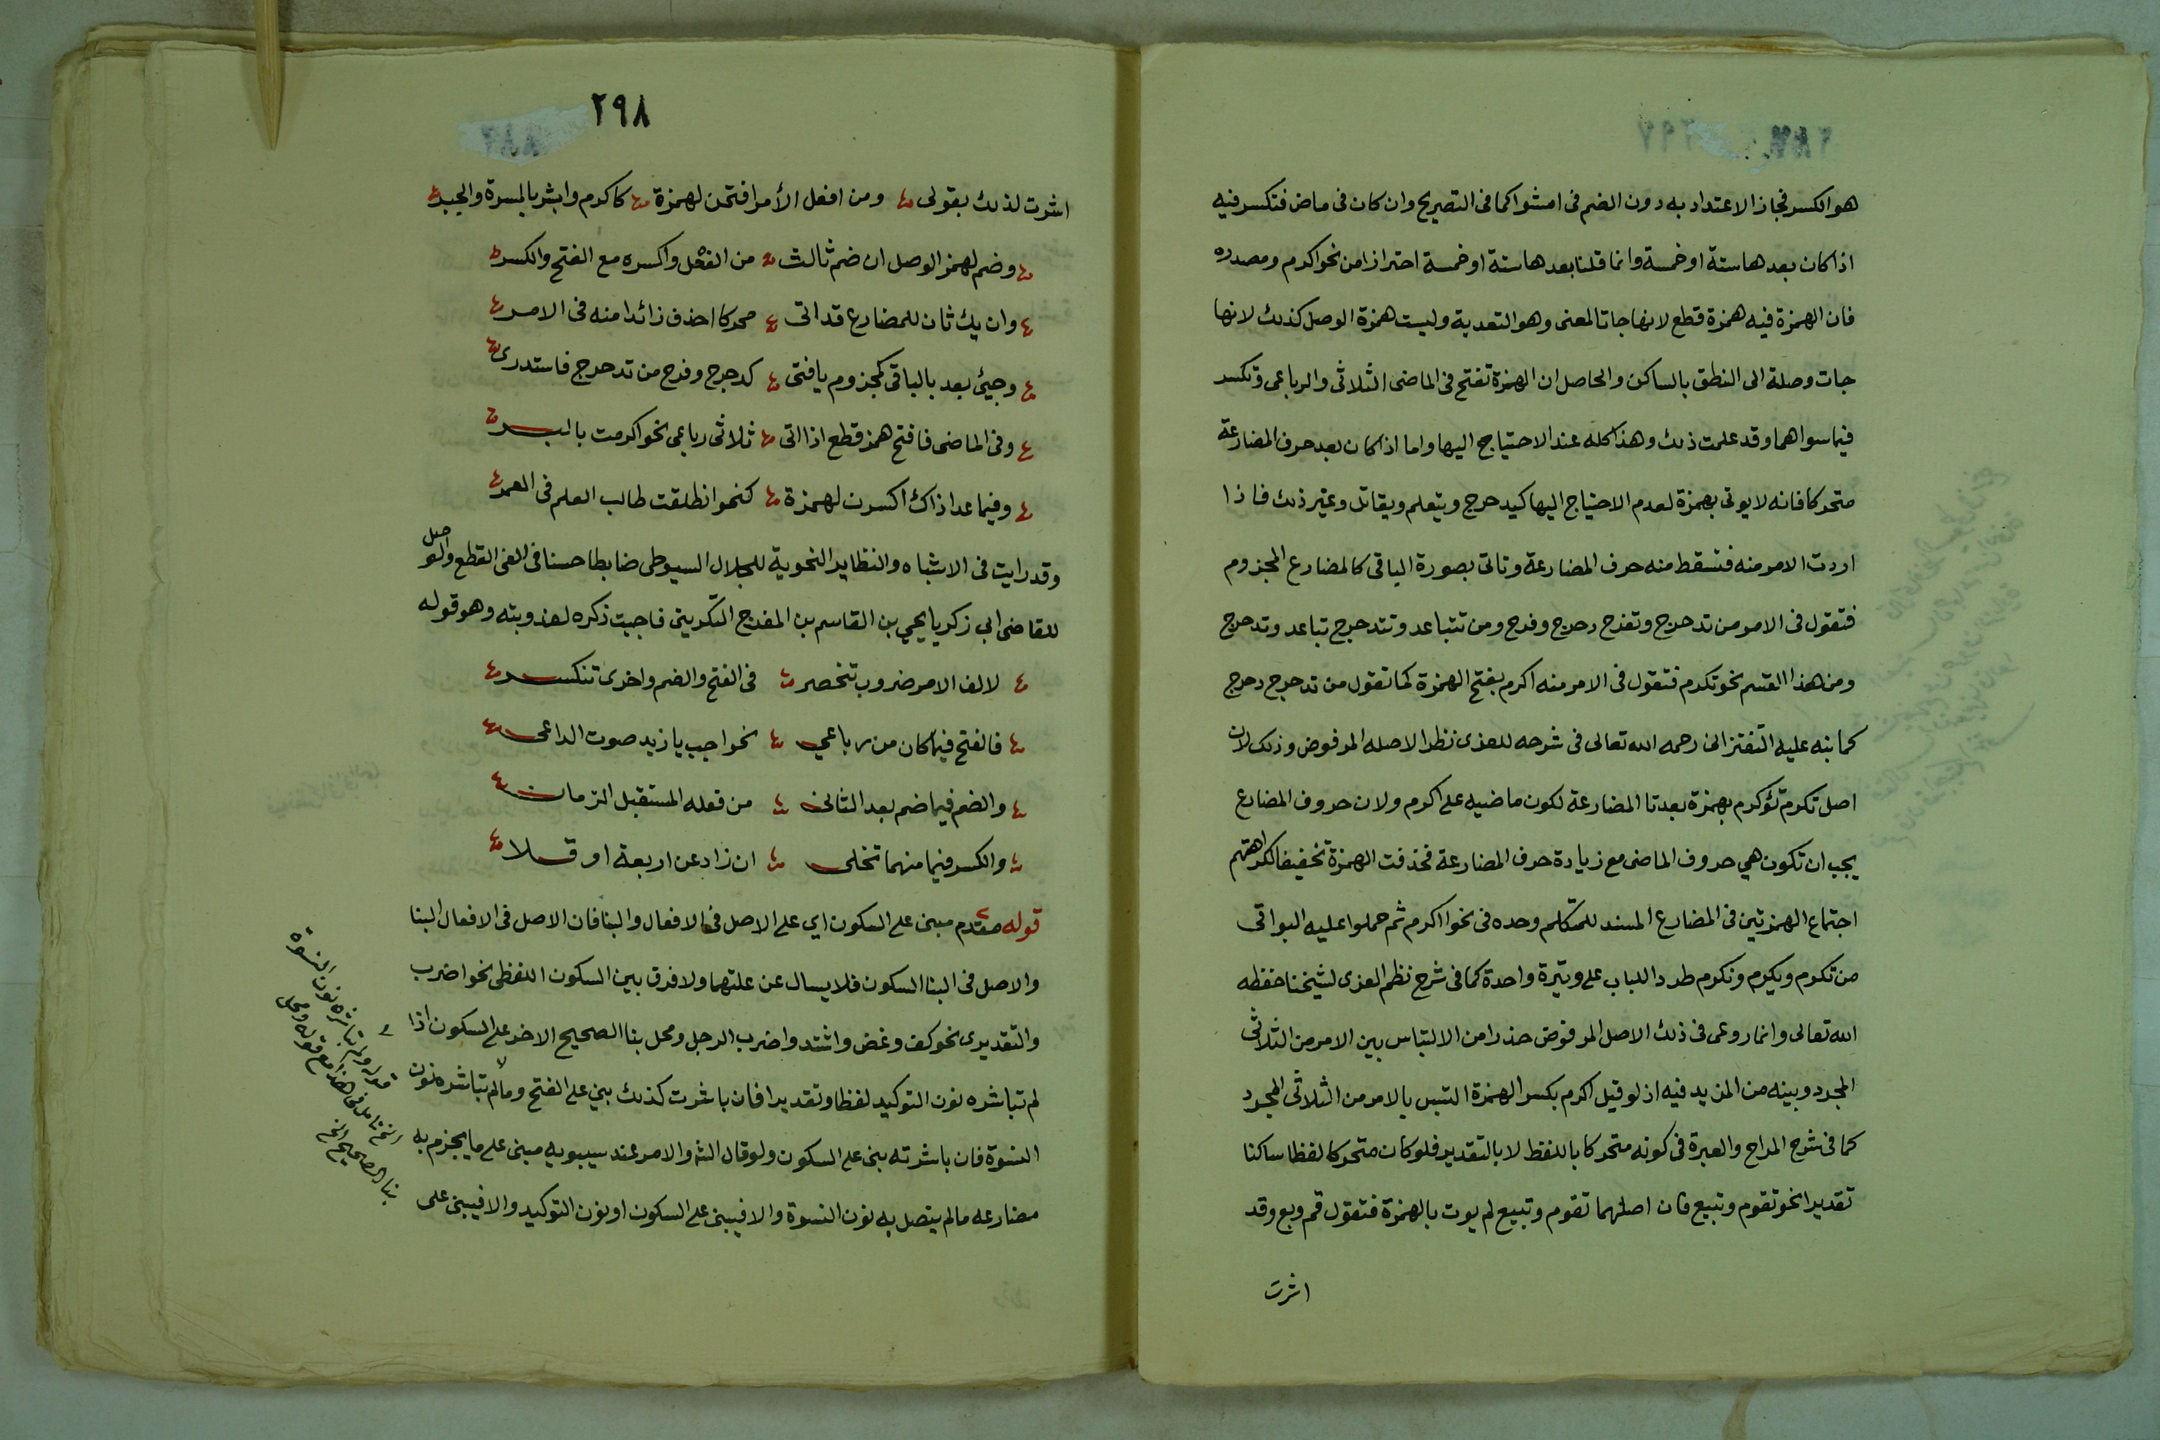 هو الكسر فجاز الاعتداد به دون الضم فى امشوا كما فى التصريح وان كان فى ماض فتكسر فيه
اذا كان بعدها ستة او خمسة وانما قلنا بعدها ستة او خمسة احترازا من نحو اكرم ومصدره
فان الهمزة فيه همزة قطع لانها جات المعنى وهو التعدية وليست همزة الوصل كذلك لانها
جات وصلة الى النطق بالساكن والحاصل ان الهمزة تفتح فى الماضى الثلاثى والرباعى وتكسر
فيما سواهما وقد علمت ذلك وهذا كله عند الاحتياج اليها واما اذا كان بعد حرف المضارعة
متحركا فانه لا يوتى بهمزة لعدم الاحتياج اليها كيدحرج ويتعلم ويقاتل وغير ذلك فاذا
اردت الامر منه فتسقط منه حرف المضارعة وتاتى بصورة الباقى كالمضارع المجزوم
فتقول فى الامر من تدحرج وتفرح دحرج وفرح ومن تتباعد وتتدحرج تباعد وتدحرج
ومن هذا القسم نحو تكرم فتقول فى الامر منه اكرم بفتح الهمزة كما تقول من تدحرج دحرج
كما نبه عليه التفتزانى رحمه الله تعالى فى شرحه للعزى نظرا لاصله المرفوض وذلك لان
اصل تكرم تؤكرم بهمزة بعد تا المضارعة لكون ماضيه على اكرم ولان حروف المضارع
يجب ان تكون هي حروف الماضى مع زيادة حرف المضارعة فحذفت الهمزة تخفيفا لكراهتهم
اجتماع الهمزتين فى المضارع المسند للمتكلم وحده فى نحو ااكرم ثم حملوا عليه البواقى
من تكرم ويكرم ونكرم طردا للباب على وتيرة واحدة كما فى شرح نظم العزى لشيخنا حفظه
الله تعالى وانما روعى فى ذلك الاصل المرفوض حذرا من الالتباس بين الامر من الثلاثى
المجرد وبينه من المزيد فيه اذ لو قيل اكرم بكسر الهمزة التبس بالامر من الثلاثى المجرد
كما فى شرح المراح والعبرة فى كونه متحركا باللفظ لا بالتقدير فلو كان متحركا لفظا ساكنا
تقديرا نحو تقوم وتبيع فان اصلهما تقوم وتبيع لم يوت بالهمزة فتقول قم وبع وقد
اشرت
٢٩٨
اشرت لذلك بقولى ومن افعل الأمر افتحن لهمزة كاكرم وابشر بالمسرة والجبر
وضم لهمز الوصل ان ضم ثالث من الفعل واكسره مع الفتح والكسر
وان يك ثان للمضارع قد اتى محركا احذف زائدا منه فى الامر
وجئ بعد بالباقى كمجزوم يا فتى كدحرج وفرح من تدحرج فاستدرى
وفى الماضى فافتح همز قطع اذا اتى ثلاثى رباعى نحو اكرمت بالبر
وفيما عدا ذاك اكسرن لهمزة كنحو انطلقت طالب العلم فى العمر
وقد رايت فى الاشباه والنظاير النحوية للجلال السيوطى ضابطا حسنا فى الفى القطع والوصل
للقاضى ابي زكريا يحيي بن القاسم بن المفرج التكريتى فاحببت ذكره لعذوبته وهو قوله
لالف الامر ضروب تنحصر فى الفتح والضم واخرى تنكسر
فالفتح فيما كان من رباعي نحو اجب يا زيد صوت الداعى
والضم فيما ضم بعد الثانى من فعله المستقبل الزمان
والكسر فيما منهما تخلى ان زاد عن اربعة او قلا
قوله مقدم مبنى على السكون اي على الاصل فى الافعال والبنا فان الاصل فى الافعال البنا
والاصل فى البنا السكون فلا يسال عن علتهما ولا فرق بين السكون اللفظى نحو اضرب
والتقديرى نحو كف وغض واشتد واضرب الرجل ومحل بنا الصحيح الاخر على السكون اذا
لم تباشره نون التوكيد لفظا وتقديرا فان باشرت كذلك بني على الفتح وما لم تباشره نون
النسوة فان باشرته بنى على السكون ولو قال الشه والامر عند سيبويه مبنى على ما يجزم به
مضارعه ما لم يتصل به نون النسوة والا فيبنى على السكون او نون التوكيد والا فيبنى على
قوله ولم تباشره نون النسوة
الخ تامل فى هذا مع قوله ومحل
بنا الصحيح الخ